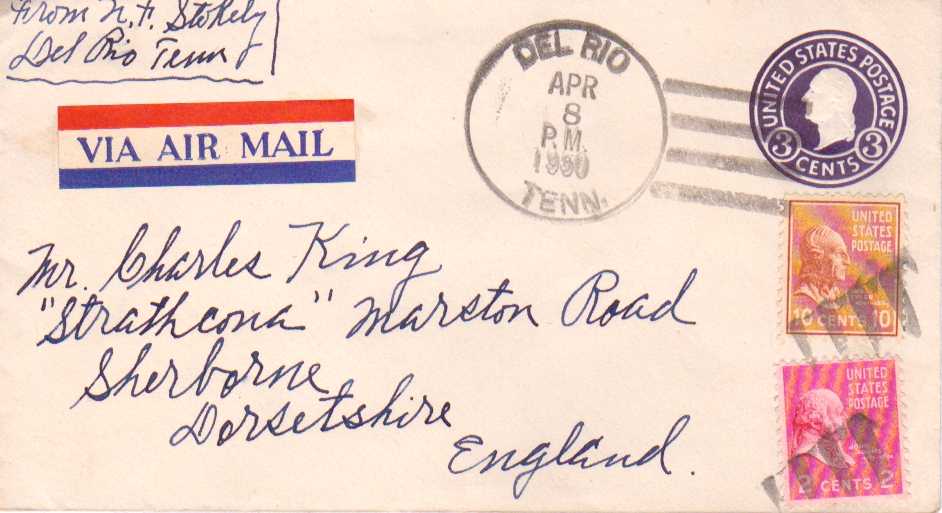 From N. F. Stokely
Del Rio Tenn
VIA AIR MAIL
DEL RIO
APR
8
P.M.
1950
TENN.
UNITED STATES POSTAGE
3 CENTS 3
UNITED
STATES
POSTAGE
10 CENTS 10
UNITED
STATES
POSTAGE
2 CENTS 2
Mr. Charles King
"Strathcona" Marston Road
Sherborne
Dorsetshire
England.